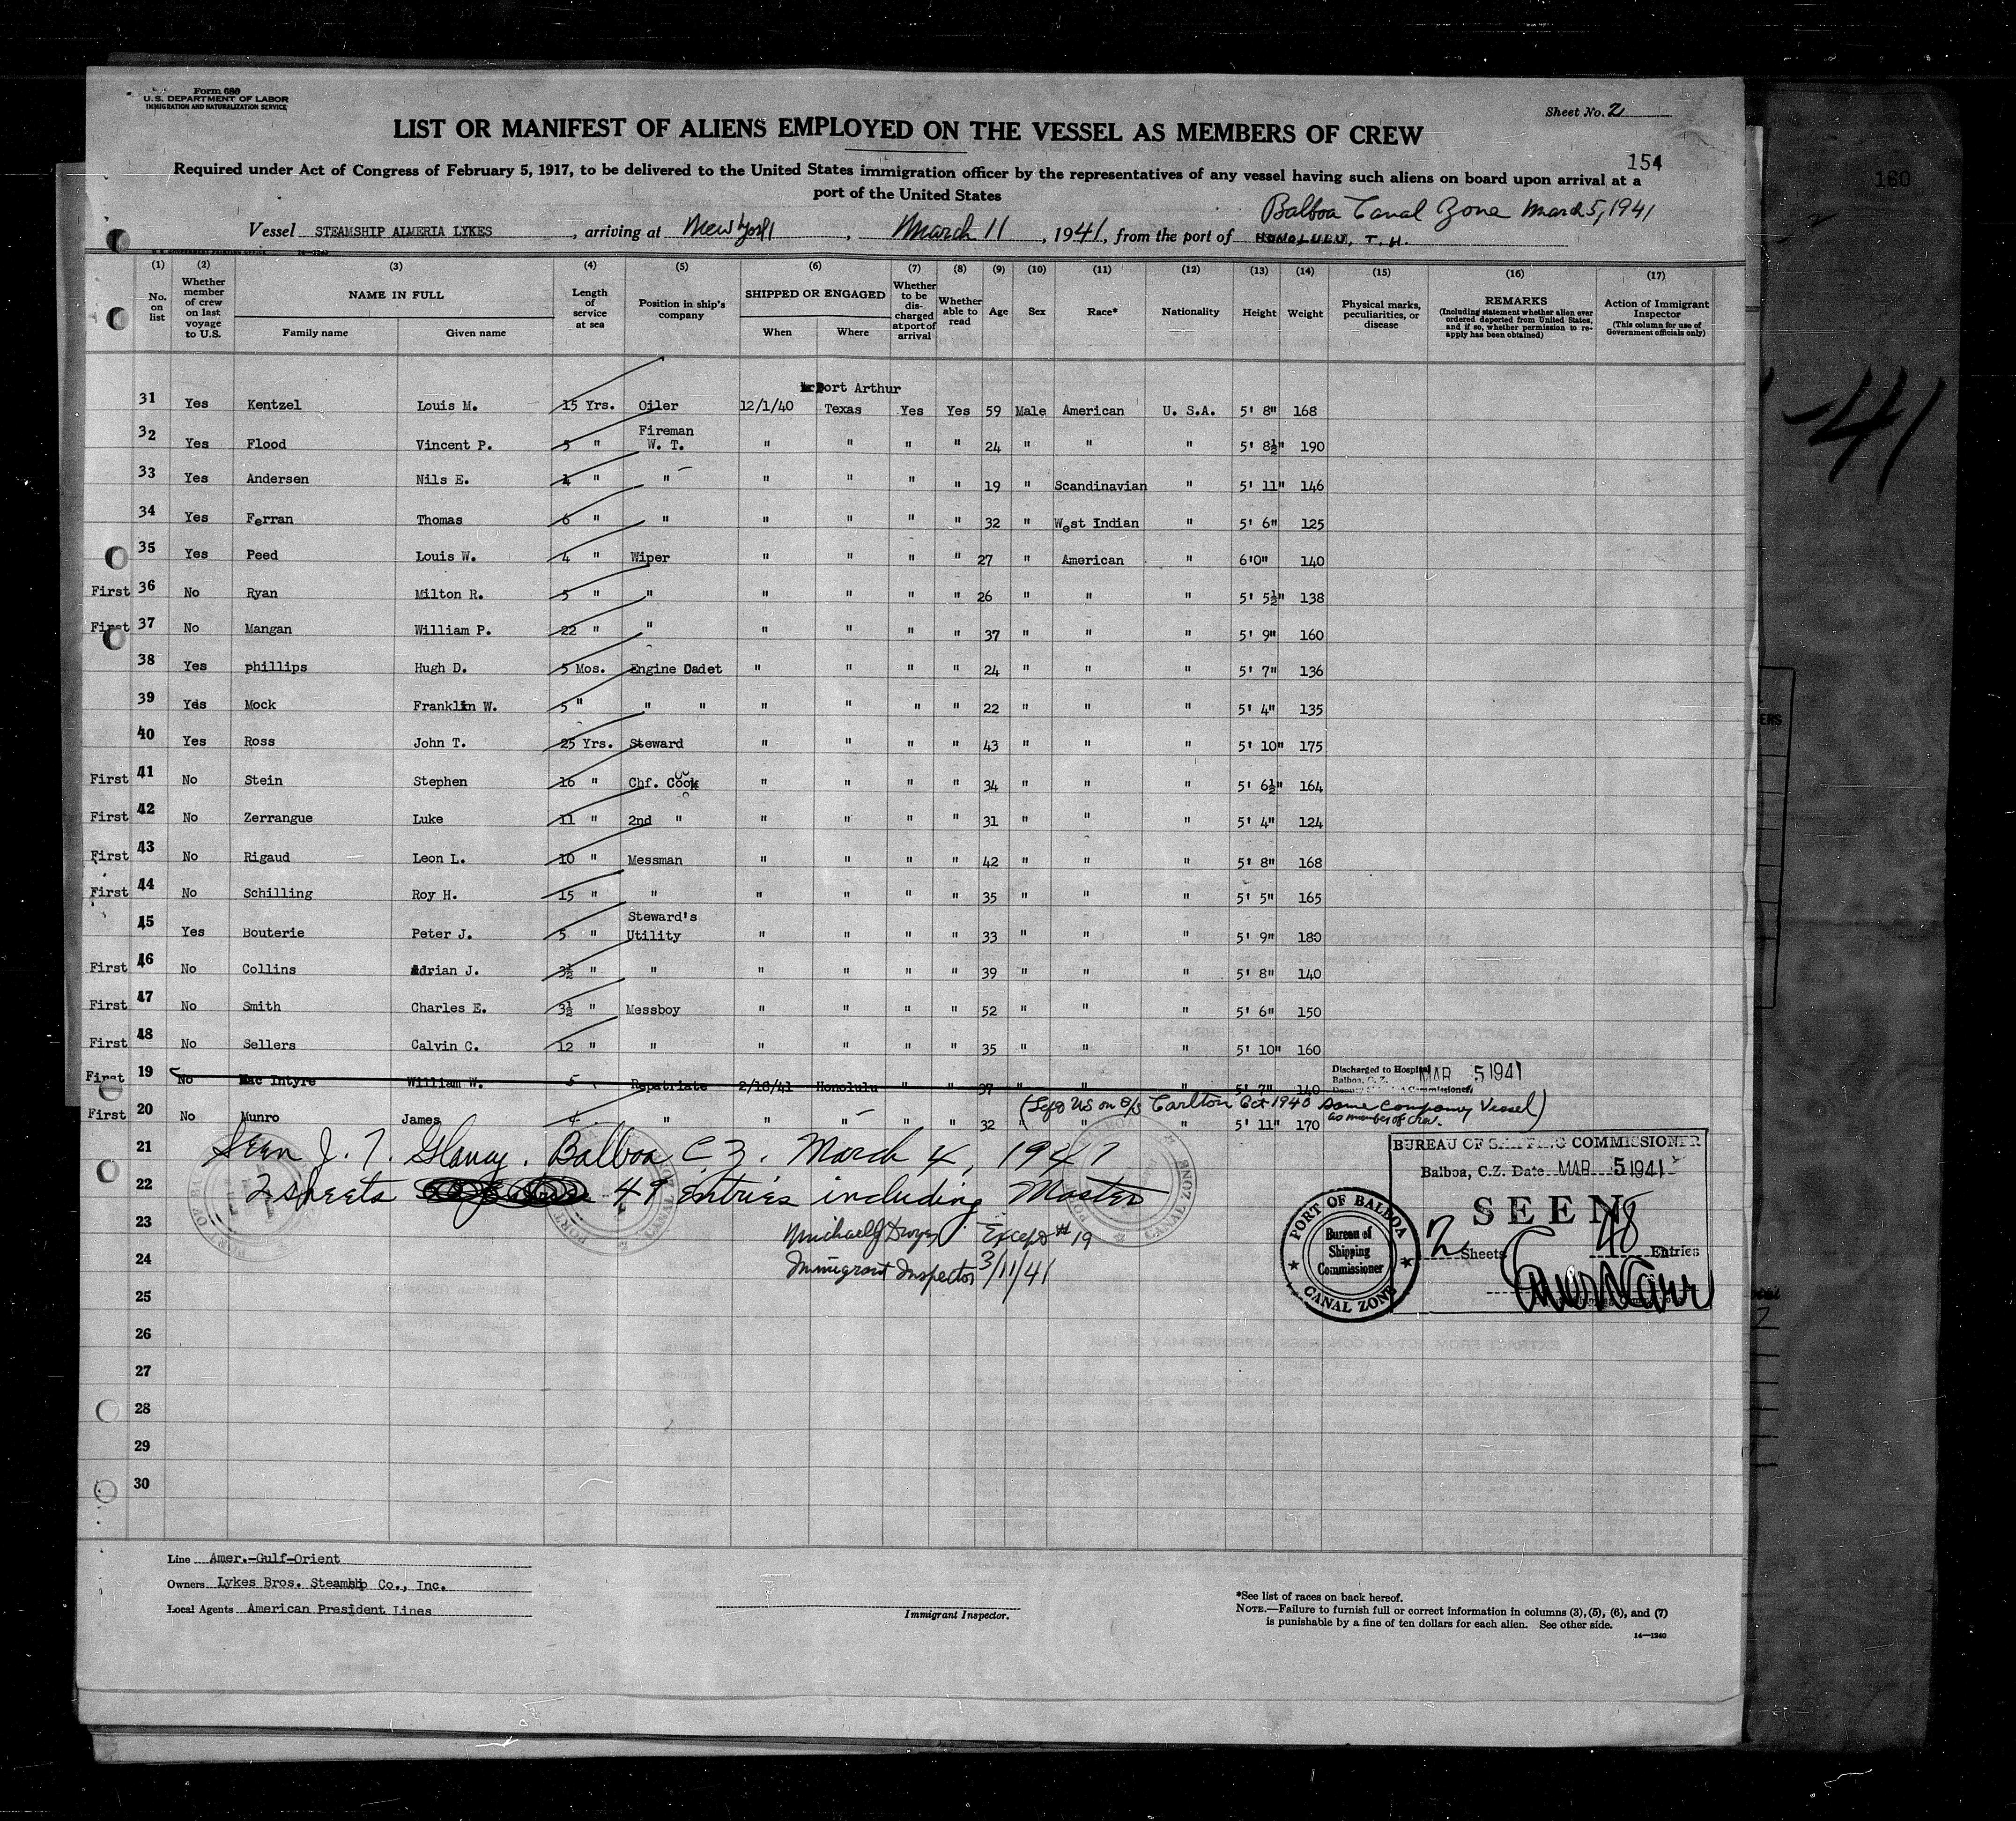 Form 680
U.S. DEPARTMENT OF LABOR
IMMIGRATION AND NATURALIZATION SERVICE
Sheet No. 2
LIST OR MANIFEST OF ALIENS EMPLOYED ON THE VESSEL AS MEMBERS OF CREW
154
160
Required under Act of Congress of February 5, 1917, to be delivered to the United States immigration officer by the representatives of any vessel having such aliens on board upon arrival at a
port of the United States
Balboa Canal Zone March 5, 1941
Vessel STEAMSHIP ALMERIA LYKES, arriving at New York, March 11, 1941, from the port of HONOLULU, T.H.
(1) (2) (3) (4) (5) (6) (7) (8) (9) (10) (11) (12) (13) (14) (15) (16) (17)
No. on list
Whether member of crew on last voyage to U.S.
NAME IN FULL
Family name Given name
Length of service at sea
Position in ship's company
SHIPPED OR ENGAGED
When Where
Whether to be discharged at port of arrival
Whether able to read
Age
Sex
Race*
Nationality
Height
Weight
Physical marks, peculiarities, or disease
REMARKS
(Including statement whether alien ever ordered deported from United States, and if so, whether permission to re-apply has been obtained)
Action of Immigrant Inspector
(This column for use of Government officials only)
-41
Port Arthur
31 Yes Kentzel Louis M. 15 Yrs. Oiler 12/1/40 Texas Yes Yes 59 Male American U. S.A. 5' 8" 168
32 Yes Flood Vincent P. 5 " Fireman W. T. " " " " 24 " " " 5' 8½" 190
33 Yes Andersen Nils E. " " " " " " 19 " Scandinavian " 5' 11" 146
34 Yes Ferran Thomas 6 " " " " " " 32 " West Indian " 5' 6" 125
35 Yes Peed Louis W. 4 " Wiper " " " " 27 " American " 6'0" 140
First 36 No Ryan Milton R. 5 " " " " " " 26 " " " 5' 5½" 138
First 37 No Mangan William P. 22 " " " " " " 37 " " " 5' 9" 160
38 Yes phillips Hugh D. 5 Mos. Engine Cadet " " " " 24 " " " 5' 7" 136
39 Yes Mock Franklin W. 5 " " " " " " " 22 " " " 5' 4" 135
40 Yes Ross John T. 25 Yrs. Steward " " " " 43 " " " 5' 10" 175
First 41 No Stein Stephen 16 " Chf. Cook " " " " 34 " " " 5' 6½" 164
First 42 No Zerrangue Luke 11 " 2nd " " " " " 31 " " " 5' 4" 124
First 43 No Rigaud Leon L. 10 " Messman " " " " 42 " " " 5' 8" 168
First 44 No Schilling Roy H. 15 " " " " " " 35 " " " 5' 5" 165
45 Yes Bouterie Peter J. 5 " Steward's Utility " " " " 33 " " " 5' 9" 180
First 46 No Collins Adrian J. 3½ " " " " " " 39 " " " 5' 8" 140
First 47 No Smith Charles E. 3½ " Messboy " " " " 52 " " " 5' 6" 150
First 48 No Sellers Calvin C. 12 " " " " " " 35 " " " 5' 10" 160
First 19 No Mac Intyre William W. 5 Repatriate 2/18/41 Honolulu " " 37 " " " 5' 7" 140
Discharged to Hospital MAR 5 1941
Balboa, C. Z.
Deputy Commissioner
(Left US on S/S Carlton Oct 1940 same company Vessel)
as member of crew.
First 20 No Munro James 4 " " " " " 32 " " " 5' 11" 170
21 Seen J. T. Glancy. Balboa C.Z. March 4, 1941
22 2 sheets 49 Entries including Master
23 Michael J Dwyer Except #19
24 Immigrant Inspector 3/11/41
25
26
27
28
29
30
BUREAU OF SHIPPING COMMISSIONER
Balboa, C.Z. Date MAR 5 1941
SEEN
2 Sheets 48 Entries
PORT OF BALBOA
Bureau of Shipping Commissioner
CANAL ZONE
Line Amer.-Gulf-Orient
Owners Lykes Bros. Steamship Co., Inc.
Local Agents American President Lines
Immigrant Inspector.
*See list of races on back hereof.
NOTE.—Failure to furnish full or correct information in columns (3), (5), (6), and (7)
is punishable by a fine of ten dollars for each alien. See other side.
14—1240